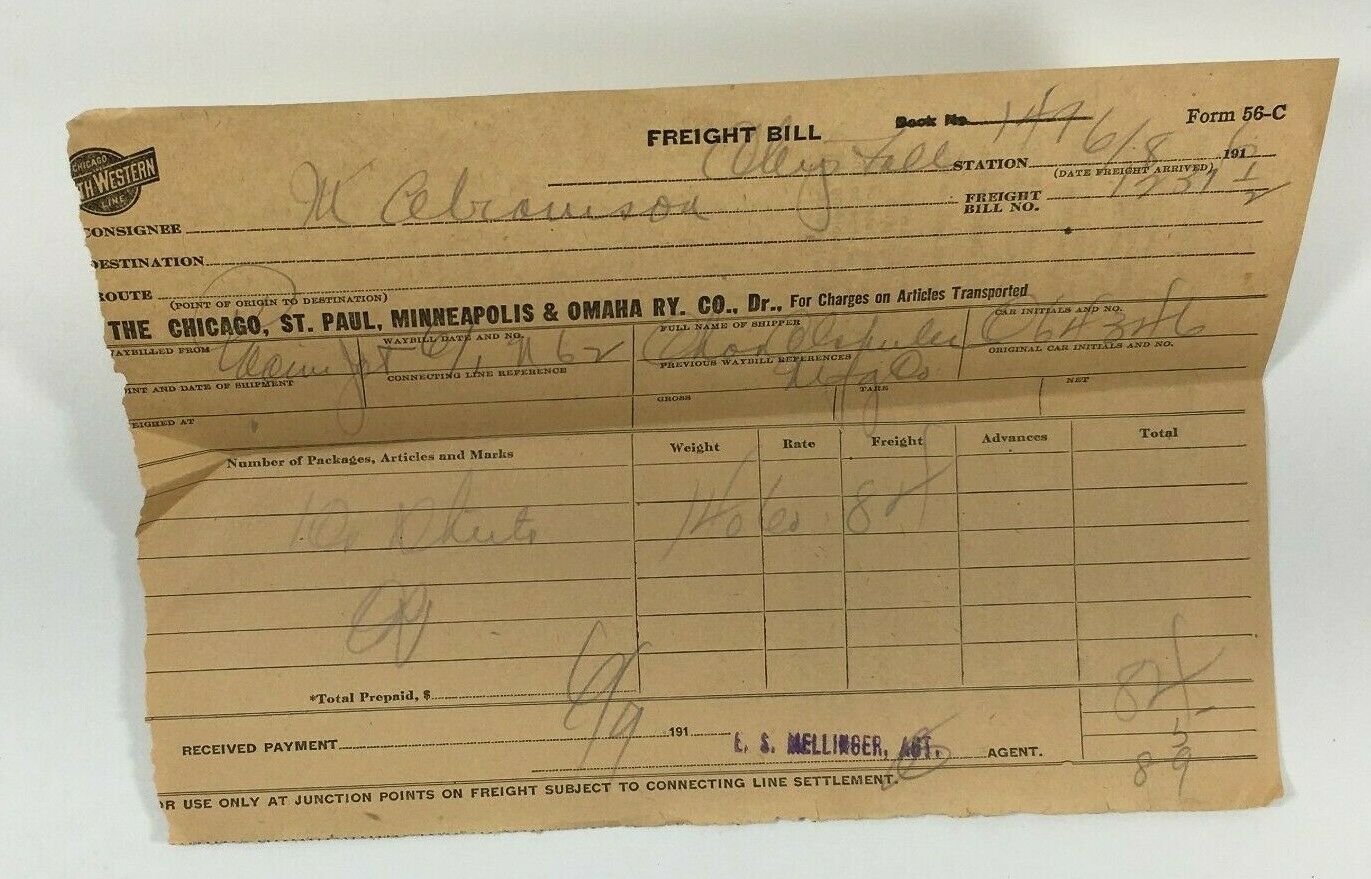 FREIGHT BILL
Book No. 1476
Form 56-C
CHICAGO
TH WESTERN
LINE
STATION 6/8 191
(DATE FREIGHT ARRIVED)
CONSIGNEE M Abramson
FREIGHT
BILL NO.
DESTINATION
ROUTE
(POINT OF ORIGIN TO DESTINATION)
THE CHICAGO, ST. PAUL, MINNEAPOLIS & OMAHA RY. CO., Dr., For Charges on Articles Transported
WAYBILLED FROM
WAYBILL DATE AND NO.
FULL NAME OF SHIPPER
CAR INITIALS AND NO.
INT AND DATE OF SHIPMENT
CONNECTING LINE REFERENCE
PREVIOUS WAYBILL REFERENCES
Mfg Co
ORIGINAL CAR INITIALS AND NO.
EIGHED AT
GROSS
TARE
NET
Number of Packages, Articles and Marks
Weight
Rate
Freight
Advances
Total
140 60 84
*Total Prepaid, $
84
RECEIVED PAYMENT 6/9 191
E. S. MELLINGER, AGT.
AGENT.
5
89
OR USE ONLY AT JUNCTION POINTS ON FREIGHT SUBJECT TO CONNECTING LINE SETTLEMENT.